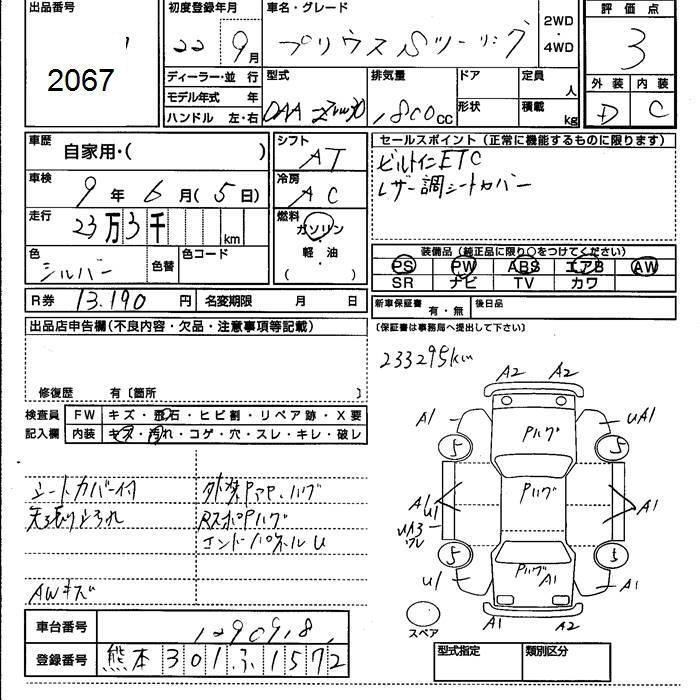 出品番号
2067
初度登録年月
22 9月
車名・グレード
プリウス Sツーリング
2WD
・
4WD
評価点
3
外装 内装
D C
ディーラー・並行
モデル年式 年
ハンドル 左・右
型式
DAA-
排気量
1,800cc
ドア
形状
定員
人
積載
kg
車歴
自家用・( )
車検
9年6月(5日)
走行
23万3千 km
色
シルバー
色替
色コード
シフト
AT
冷房
AC
燃料
ガソリン
・
軽・油
( )
セールスポイント(正常に機能するものに限ります)
ビルトインETC
レザー調シートカバー
装備品(純正品に限り○をつけてください)
PS PW ABS エアB AW
SR ナビ TV カワ
R券 13,190 円
名変期限 月 日
新車保証書 有・無
後日品
(保証書は事務局へ提出して下さい)
出品店申告欄(不良内容・欠品・注意事項等記載)
修復歴 有〔箇所 〕
233295km
検査員
記入欄
FW キズ・飛石・ヒビ割・リペア跡・X要
内装 キズ・汚れ・コゲ・穴・スレ・キレ・破レ
シートカバー付
天張りよごれ
AWキズ
RスポPハゲ
エンドパネルU
A2 A2
A1 UA1
Pハゲ
5 5
Pハゲ
A1
U1
A1
5 5
Pハゲ
A1
U1 A1
A1 A2
スペア
車台番号
1290918
登録番号
熊本 301 ふ 1572
型式指定
類別区分